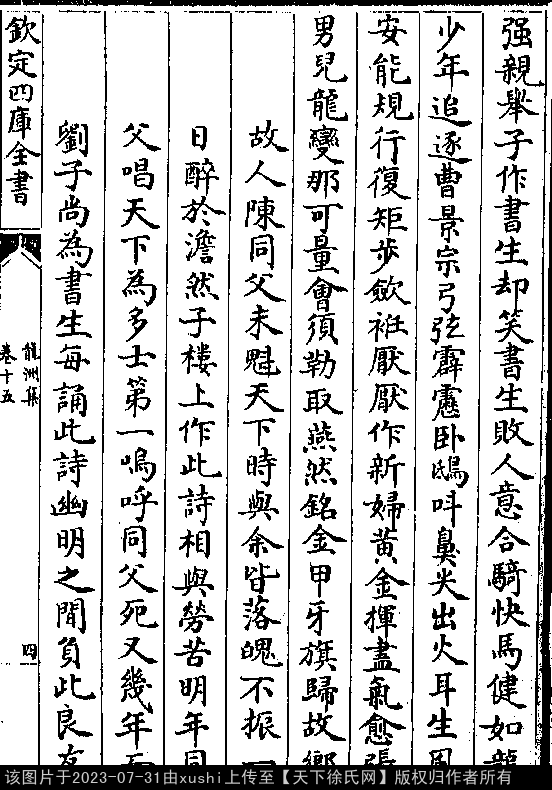 强親舉子作書生却笑書生敗人意合騎快馬健如龍
少年追逐曹景宗弓弦霹靂卧鴟叫鼻尖出火耳生風
安能規行復矩步斂袵厭厭作新婦黄金揮盡氣愈張
男兒龍變那可量會須勒取燕然銘金甲牙旗歸故鄉
故人陳同父未魁天下時與余皆落魄不振一
日醉於澹然子樓上作此詩相與勞苦明年同
父唱天下為多士第一嗚呼同父死又幾年而
劉子尚為書生每誦此詩幽明之間負此良友
欽定四庫全書
龍洲集
卷十五
四
该图片于2023-07-31由xushi上传至【天下徐氏网】版权归作者所有